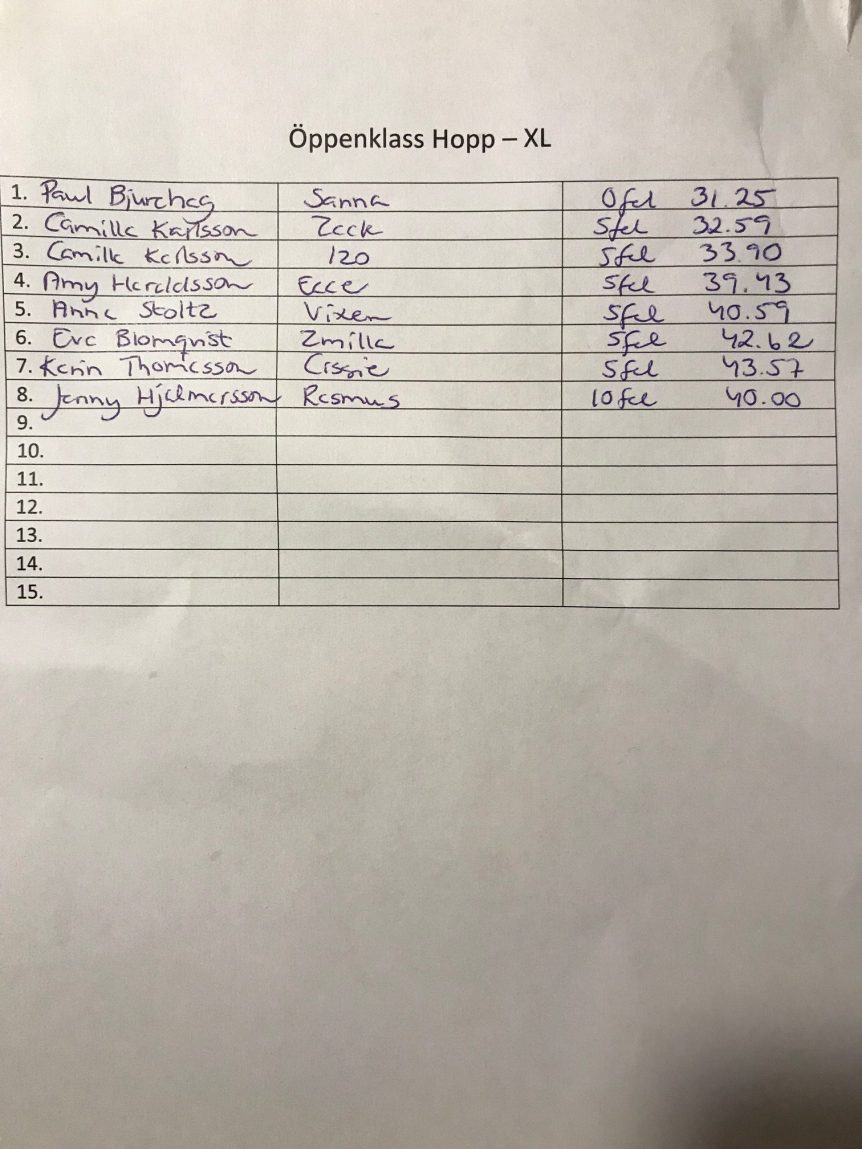 Öppenklass Hopp – XL
1. Paul Bjurhag Sanna 0 fel 31.25
2. Camilla Karlsson Zack 5 fel 32.59
3. Camilla Karlsson 120 5 fel 33.90
4. Amy Haraldsson Ecce 5 fel 39.43
5. Anna Stoltz Vixen 5 fel 40.59
6. Eva Blomqvist Zmilla 5 fel 42.62
7. Karin Thomasson Cissie 5 fel 43.57
8. Jenny Hjalmarsson Rasmus 10 fel 40.00
9.
10.
11.
12.
13.
14.
15.